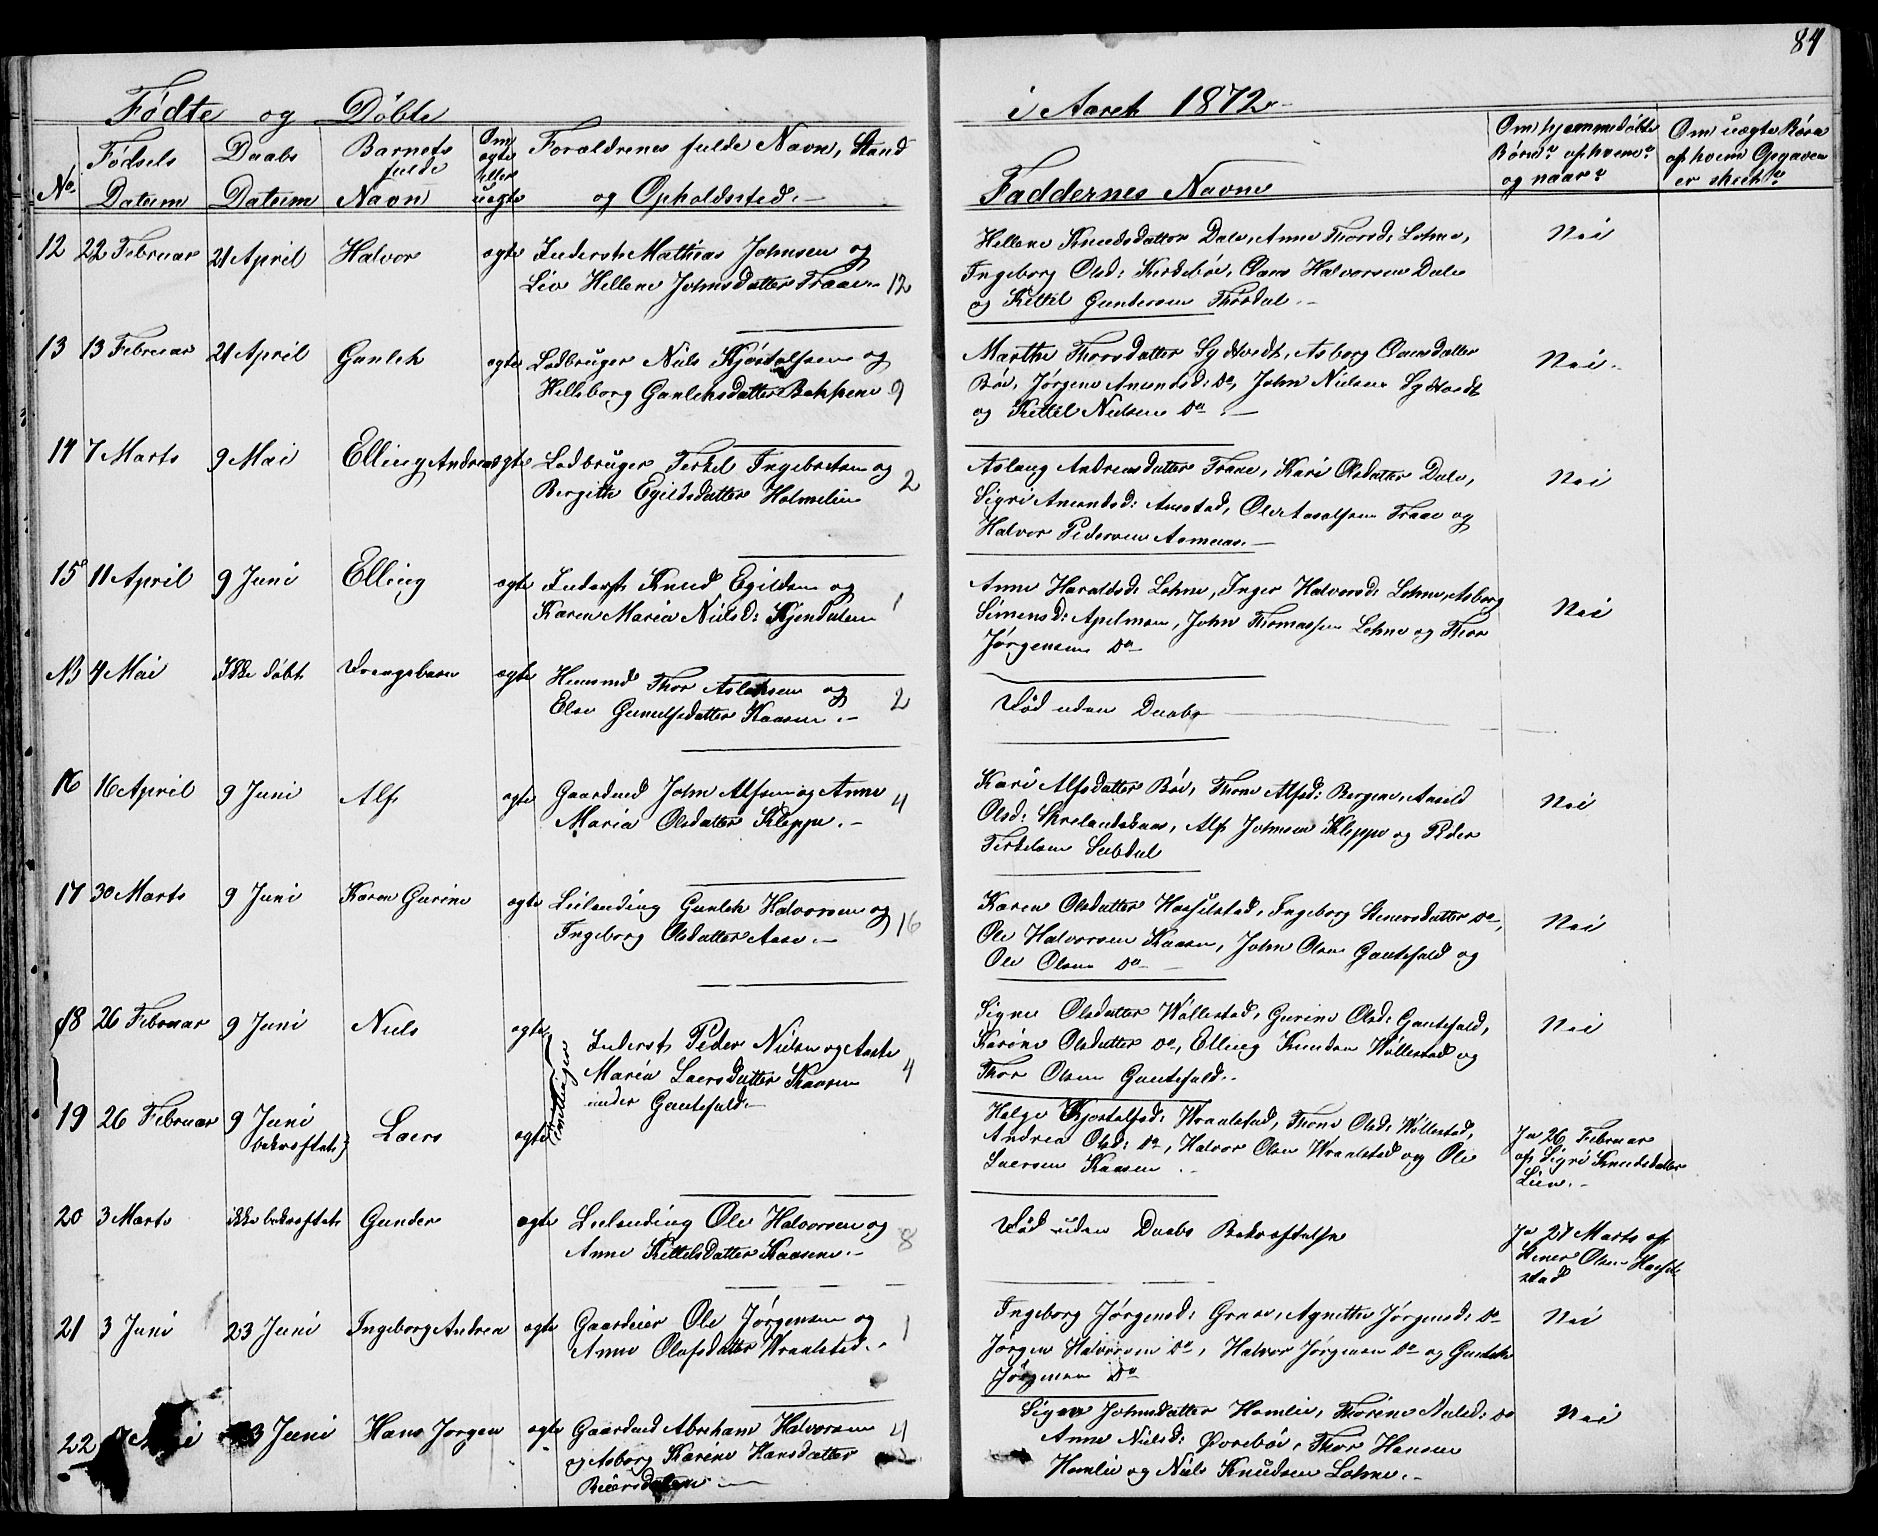 84
Fødte og Døbte
i Aaret 1872
No.
Fødsels Datum
Daabs Datum
Barnets fulde Navn
Om ægte eller uægte
Forældrenes fulde Navn, Stand
og Opholdssted.
Faddernes Navne
Om hjemmedøbte
Børn? af hvem?
og naar?
Om uægte Børn
af hvem Opgaven
er skeet?
12 22 Februar 21 April Halvor ægte Inderst Mathias Johnsen og
Liv Hellene Johnsdatter Traae 12
Hellene Knudsdatter Dale, Anne Thorsd: Lohne,
Ingeborg Olsd: Kirkebøe, Claus Halvorsen Dale
og Kittil Gundersen Thorsdal.
Nei
13 13 Februar 21 April Gunlek ægte Ledbruger Niels Kjøstolfsen og
Helleborg Gunleksdatter Bakkene 9
Marthe Thorsdatter Sydtvedt, Asborg Clausdatter
Bøe, Jørgine Amundsd: Do, John Nielsen Sydtvedt
og Kittil Nielsen Do
Nei.
14 7 Marts 9 Mai Elling Andreas ægte Ledbruger Terkel Ingebretsen og
Bergitte Egildsdatter Holmelien 2
Aslaug Andreasdatter Traae, Kari Olsdatter Dale,
Sigri Amundsd: Anestad, Ole Aasolfsen Traae og
Halvor Pedersen Asmuas.
Nei
15 11 April 9 Juni Elling ægte Inderst Knud Egildsen og
Karen Maria Nielsd: Kjendalen 1
Anne Haraldsd: Lohne, Inger Halvorsd: Lohne, Asborg
Simensd: Apelmoen, John Thomassen Lohne og Thor
Jørgensen Do
Nei
N3 4 Mai Ikke døbt Drengebarn ægte Huusmd Thor Aslaksen og
Else Gunulfsdatter Kaasene. 2
Død uden Daab
16 16 April 9 Juni Alf ægte Gaardmd John Alfsen og Anne
Maria Olsdatter Kleppe. 4
Kari Alfsdatter Bøe, Thone Alfsd: Bergene, Aasild
Olsd: Skrelandskaas, Alf Johnsen Kleppe og Peder
Terkelsen Lubdal
Nei
17 30 Marts 9 Juni Karen Gurine ægte Leilending Gunlek Halvorsen og
Ingeborg Olsdatter Aase. 16
Karen Olsdatter Hasselstad, Ingeborg Stenersdatter Do,
Ole Halvorsen Kaasen, John Olsen Gautefald og
Ole Olsen Do
Nei
18 26 Februar 9 Juni Niels ægte
Tvillinger
Inderst Peder Nielsen og Aaste
Maria Laersdatter Kaasen 4
under Gautefald.
Signe Olsdatter Wøllestad, Gurine Olsd: Gautefald,
Karine Olsdatter Do, Elling Knudsen Wøllestad og
Thor Olsen Gautefald.
Nei
19 26 Februar 9 Juni Laers ægte
bekræftet)
Helge Kjøstolfsd: Wraalstad, Thone Olsd: Wøllestad,
Andrea Olsd: Do, Halvor Olsen Wraalstad og Ole
Laersen Kaasen
Ja 26 Februar
af Sigri Knudsdatter
Lien.
20 3 Marts ikke bekræftet Gunder ægte Leilending Ole Halvorsen og
Anne Kittelsdatter Kaasene. 8
Død uden Daabs Bekræftelse
Ja 27 Marts af
Stener Olsen Hassel-
stad
21 3 Juni 23 Juni Ingeborg Andrea ægte Gaardeier Ole Jørgensen og
Anne Olafsdatter Wraalstad. 1
Ingeborg Jørgensd: Graae, Agnethe Jørgensd: Do
Jørgen Halvorsen Do, Halvor Jørgensen Do og Gunleik
Jørgensen Do
Nei
22 7 Mai 23 Juni Hans Jørgen ægte Gaardmd Abraham Halvorsen 4
og Asborg Karine Hansdatter
Beiersdalen
Signe Johnsdatter Homlie, Thorine Nielsd: Do
Anne Nielsd: Øvrebøe, Thor Hansen
Homlie og Niels Knudsen Lohne.
Nei